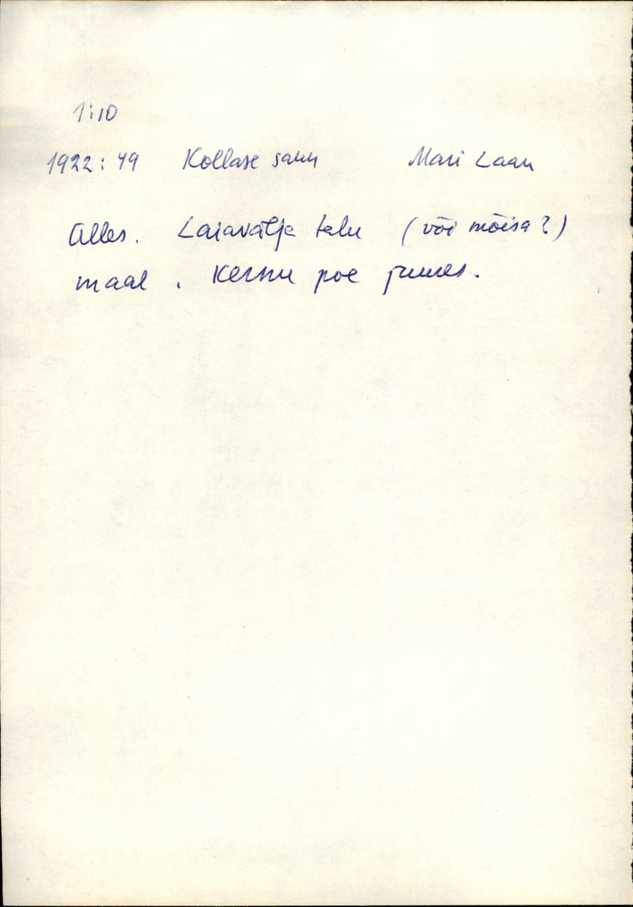 1:10
1922:49 Kollase saun Mari Laan
Alles. Laiavälja talu (või mõisa?)
maal. Kernu poe juures.